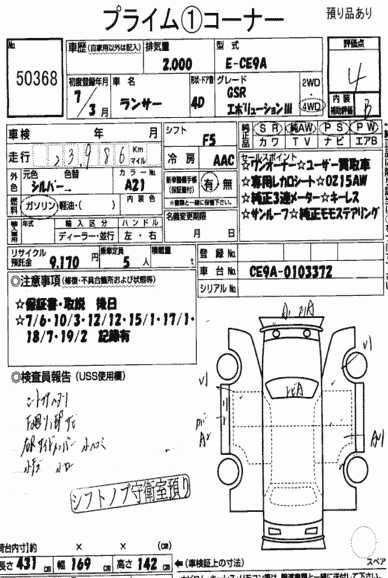 プライム①コーナー
預り品あり
No
50368
車歴(自家用以外は記入)
排気量
2.000
型式
E-CE9A
評価点
4
初度登録年月
7/3月
車名
ランサー
ドア数
4D
グレード
GSR
エボリューションⅢ
2WD
4WD
内装
補助評価
B
車検 年 月
シフト
F5
純正品
SR 純AW PS PW
カワ TV ナビ エアB
走行
23,986 Km
マイル
冷房
AAC
セールスポイント
☆ディオーナー☆ユーザー買取車
☆専用レカロシート☆OZ15AW
☆純正3連メーター☆キーレス
☆サンルーフ☆純正モモステアリング
外装
元色 色替
シルバー
カラーNo
A21
新車整備手帳
(保証書付)
有・無
燃料
ガソリン・軽油・( )
内装色
輸入車
年式
輸入区分
ディーラー・並行
ハンドル
左・右
名義変更期限
月 日
リサイクル
預託金
9,170円
乗車定員
5人
積載量
t
登録No
車台No
CE9A-0103372
シリアルNo
◎注意事項(修復・不具合箇所および状態等)
☆保証書・取説 後日
☆7/6・10/3・12/12・15/1・17/1・
18/7・19/2 記録有
◎検査員報告(USS使用欄)
シフトノブ守衛室預り
A2
荷台内寸】約 × × (cm)
長さ 431 cm 幅 169 cm 高さ 142 cm
←(車検証上の寸法)
スペア